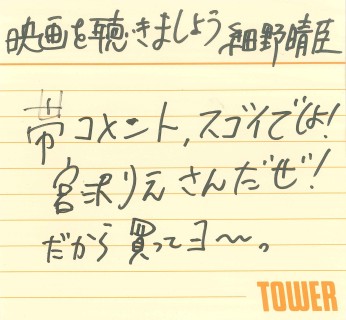 映画を聴きましょう 細野晴臣
帯コメント,スゴイでしょ!
宮沢りえさんだぜ!
だから買ってヨ〜。
TOWER